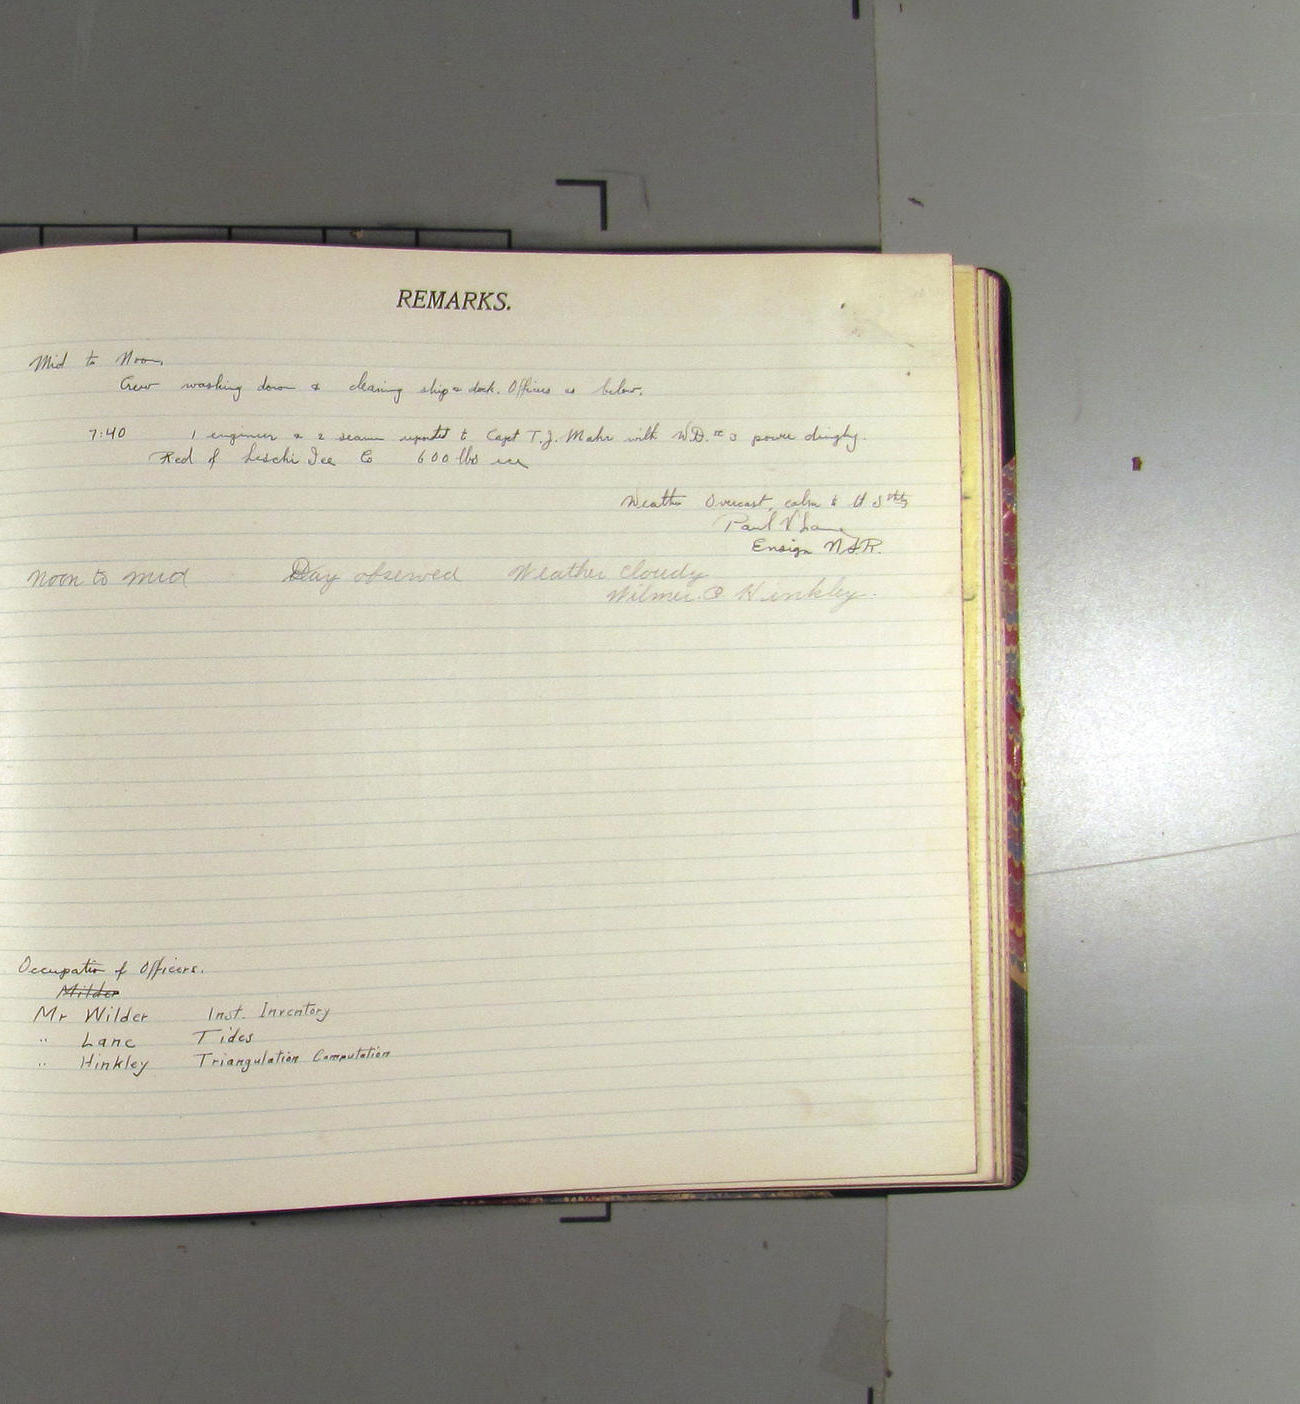 REMARKS.
Mid to Noon.
Crew washing down & cleaning ship & dock. Officers as below.
7:40 1 engineer & 2 seamen reported to Capt T. J. Maher with W.D. # 3 power dinghy.
Recd of Leschi Ice Co 600 lbs ice
Weather Overcast, calm to lt
Paul V Lane
Ensign N.R.
Noon to Mid Day observed Weather cloudy
Wilmer O Hinkley.
Occupation of Officers.
Milder
Mr Wilder Inst. Inventory
" Lane Tides
" Hinkley Triangulation Computation